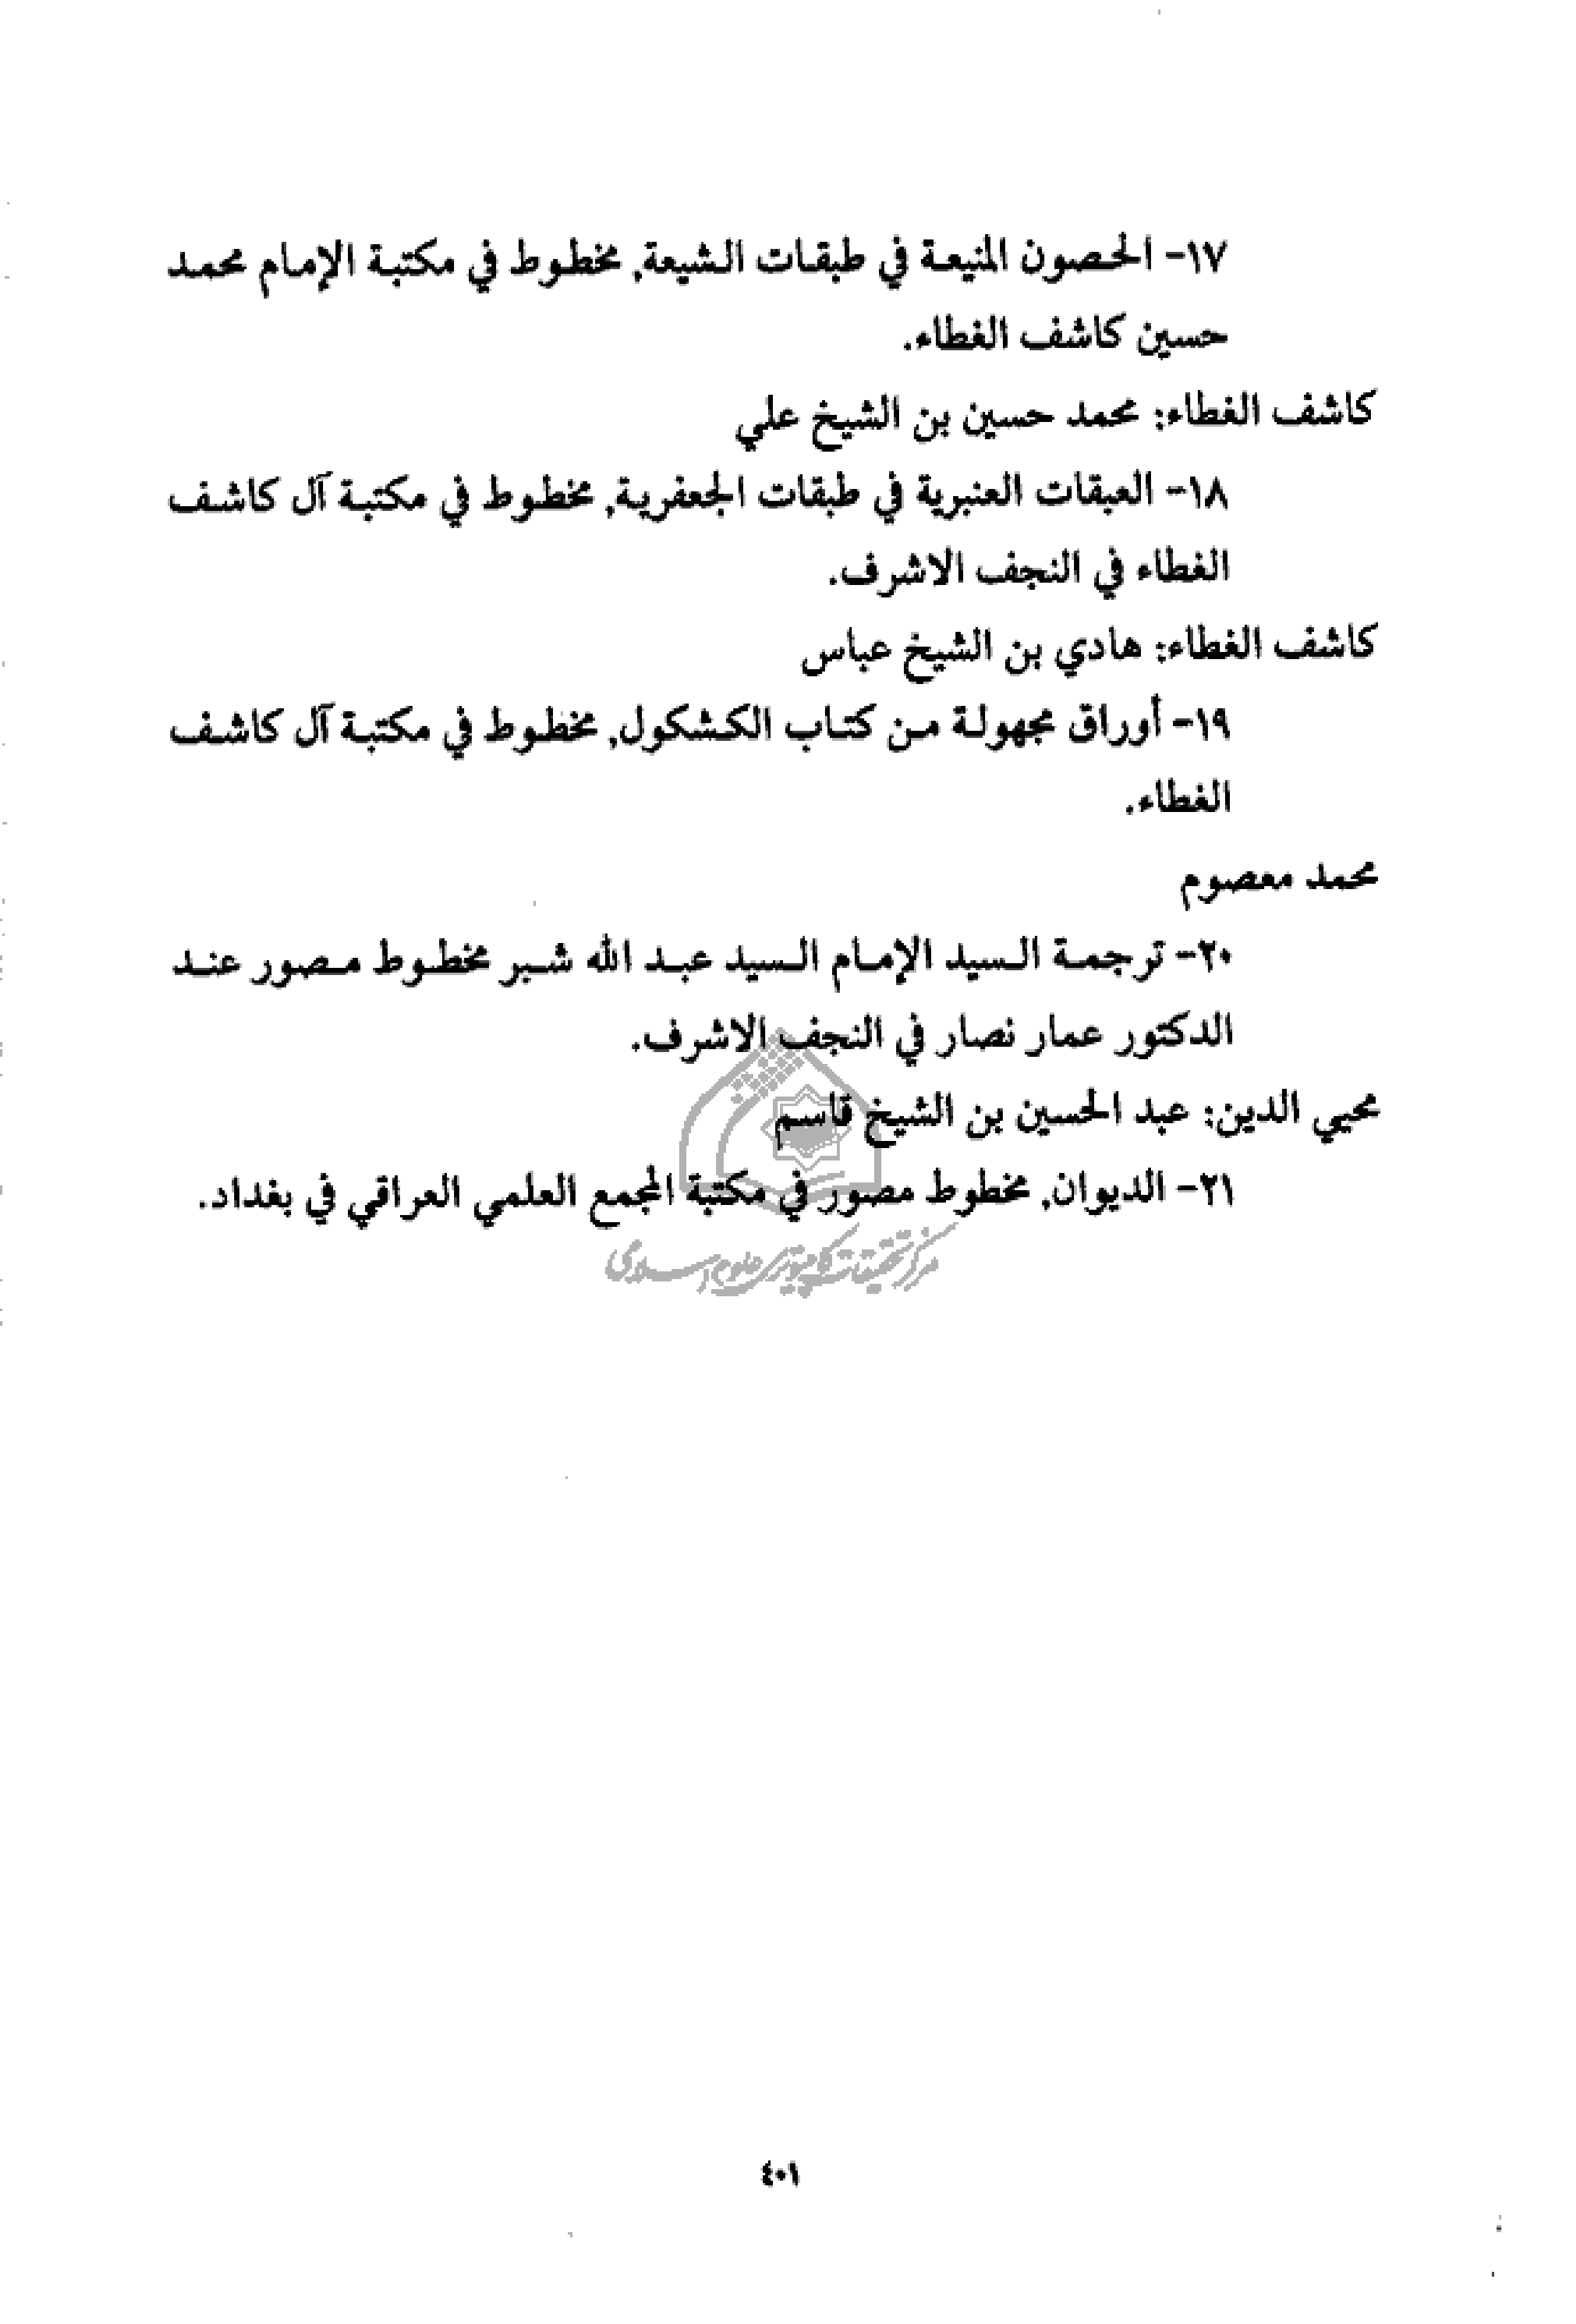 ١٧- الحصون المنيعة في طبقات الشيعة, مخطوط في مكتبة الإمام محمد
حسين كاشف الغطاء.
كاشف الغطاء: محمد حسين بن الشيخ علي
١٨- العبقات العنبرية في طبقات الجعفرية, مخطوط في مكتبة آل كاشف
الغطاء في النجف الاشرف.
كاشف الغطاء: هادي بن الشيخ عباس
١٩- أوراق مجهولة من كتاب الكشكول, مخطوط في مكتبة آل كاشف
الغطاء.
محمد معصوم
٢٠- ترجمة السيد الإمام السيد عبد الله شبر مخطوط مصور عند
الدكتور عمار نصار في النجف الاشرف.
محيي الدين: عبد الحسين بن الشيخ قاسم
٢١- الديوان, مخطوط مصور في مكتبة المجمع العلمي العراقي في بغداد.
مرکز تحقیقات کامپیوتری علوم اسلامی
٤٠١